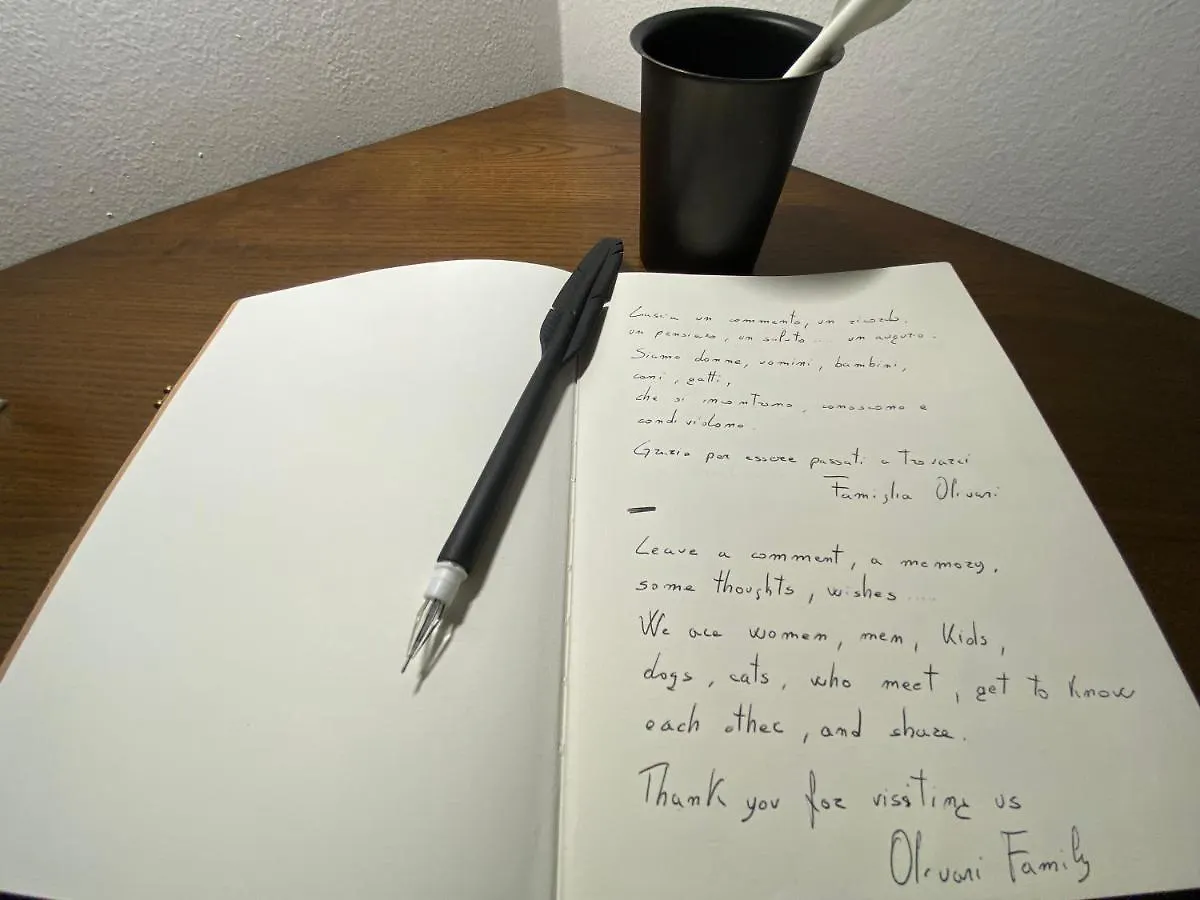 Lascia un commento, un ricordo,
un pensiero, un saluto .... un augurio.
Siamo donne, uomini, bambini,
cani, gatti,
che si incontrano, conoscono e
condividono.
Grazie per essere passati a trovarci
Famiglia Olivari
—
Leave a comment, a memory,
some thoughts, wishes ....
We are women, men, Kids,
dogs, cats, who meet, get to know
each other, and share.
Thank you for vissting us
Olivari Family